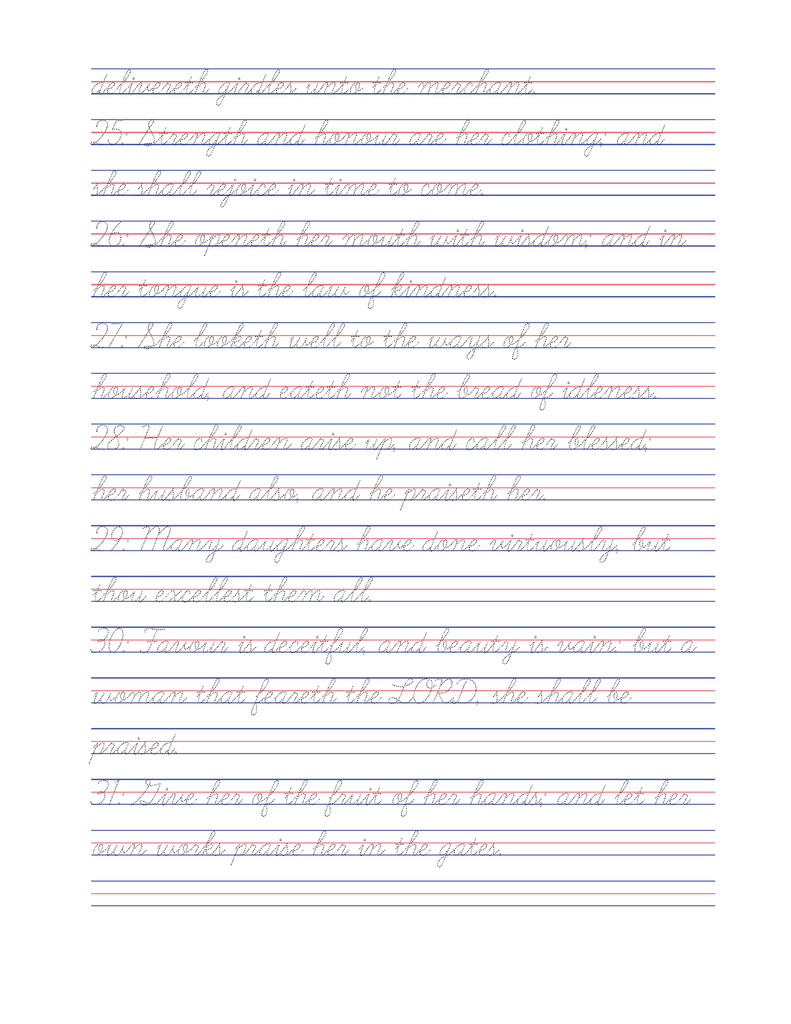 delivereth girdles unto the merchant.
25: Strength and honour are her clothing; and
she shall rejoice in time to come.
26: She openeth her mouth with wisdom; and in
her tongue is the law of kindness.
27: She looketh well to the ways of her
household, and eateth not the bread of idleness.
28: Her children arise up, and call her blessed;
her husband also, and he praiseth her.
29: Many daughters have done virtuously, but
thou excellest them all.
30: Favour is deceitful, and beauty is vain: but a
woman that feareth the LORD, she shall be
praised.
31: Give her of the fruit of her hands; and let her
own works praise her in the gates.